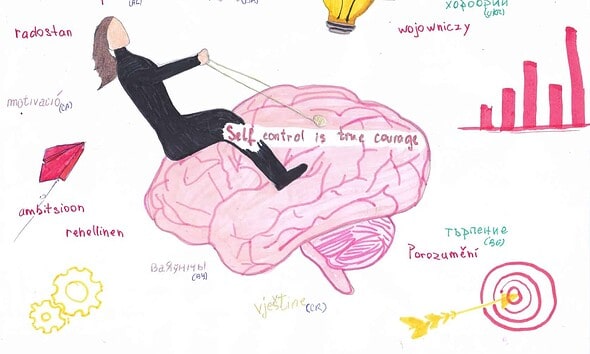 хоробрий
(UKR)
radostan
wojowniczy
motivació (CA)
Self control is true courage
ambitsioon
rehellinen
търпение
(BG)
Porozumění
ваяўнічы
(BY)
vještine (CR)